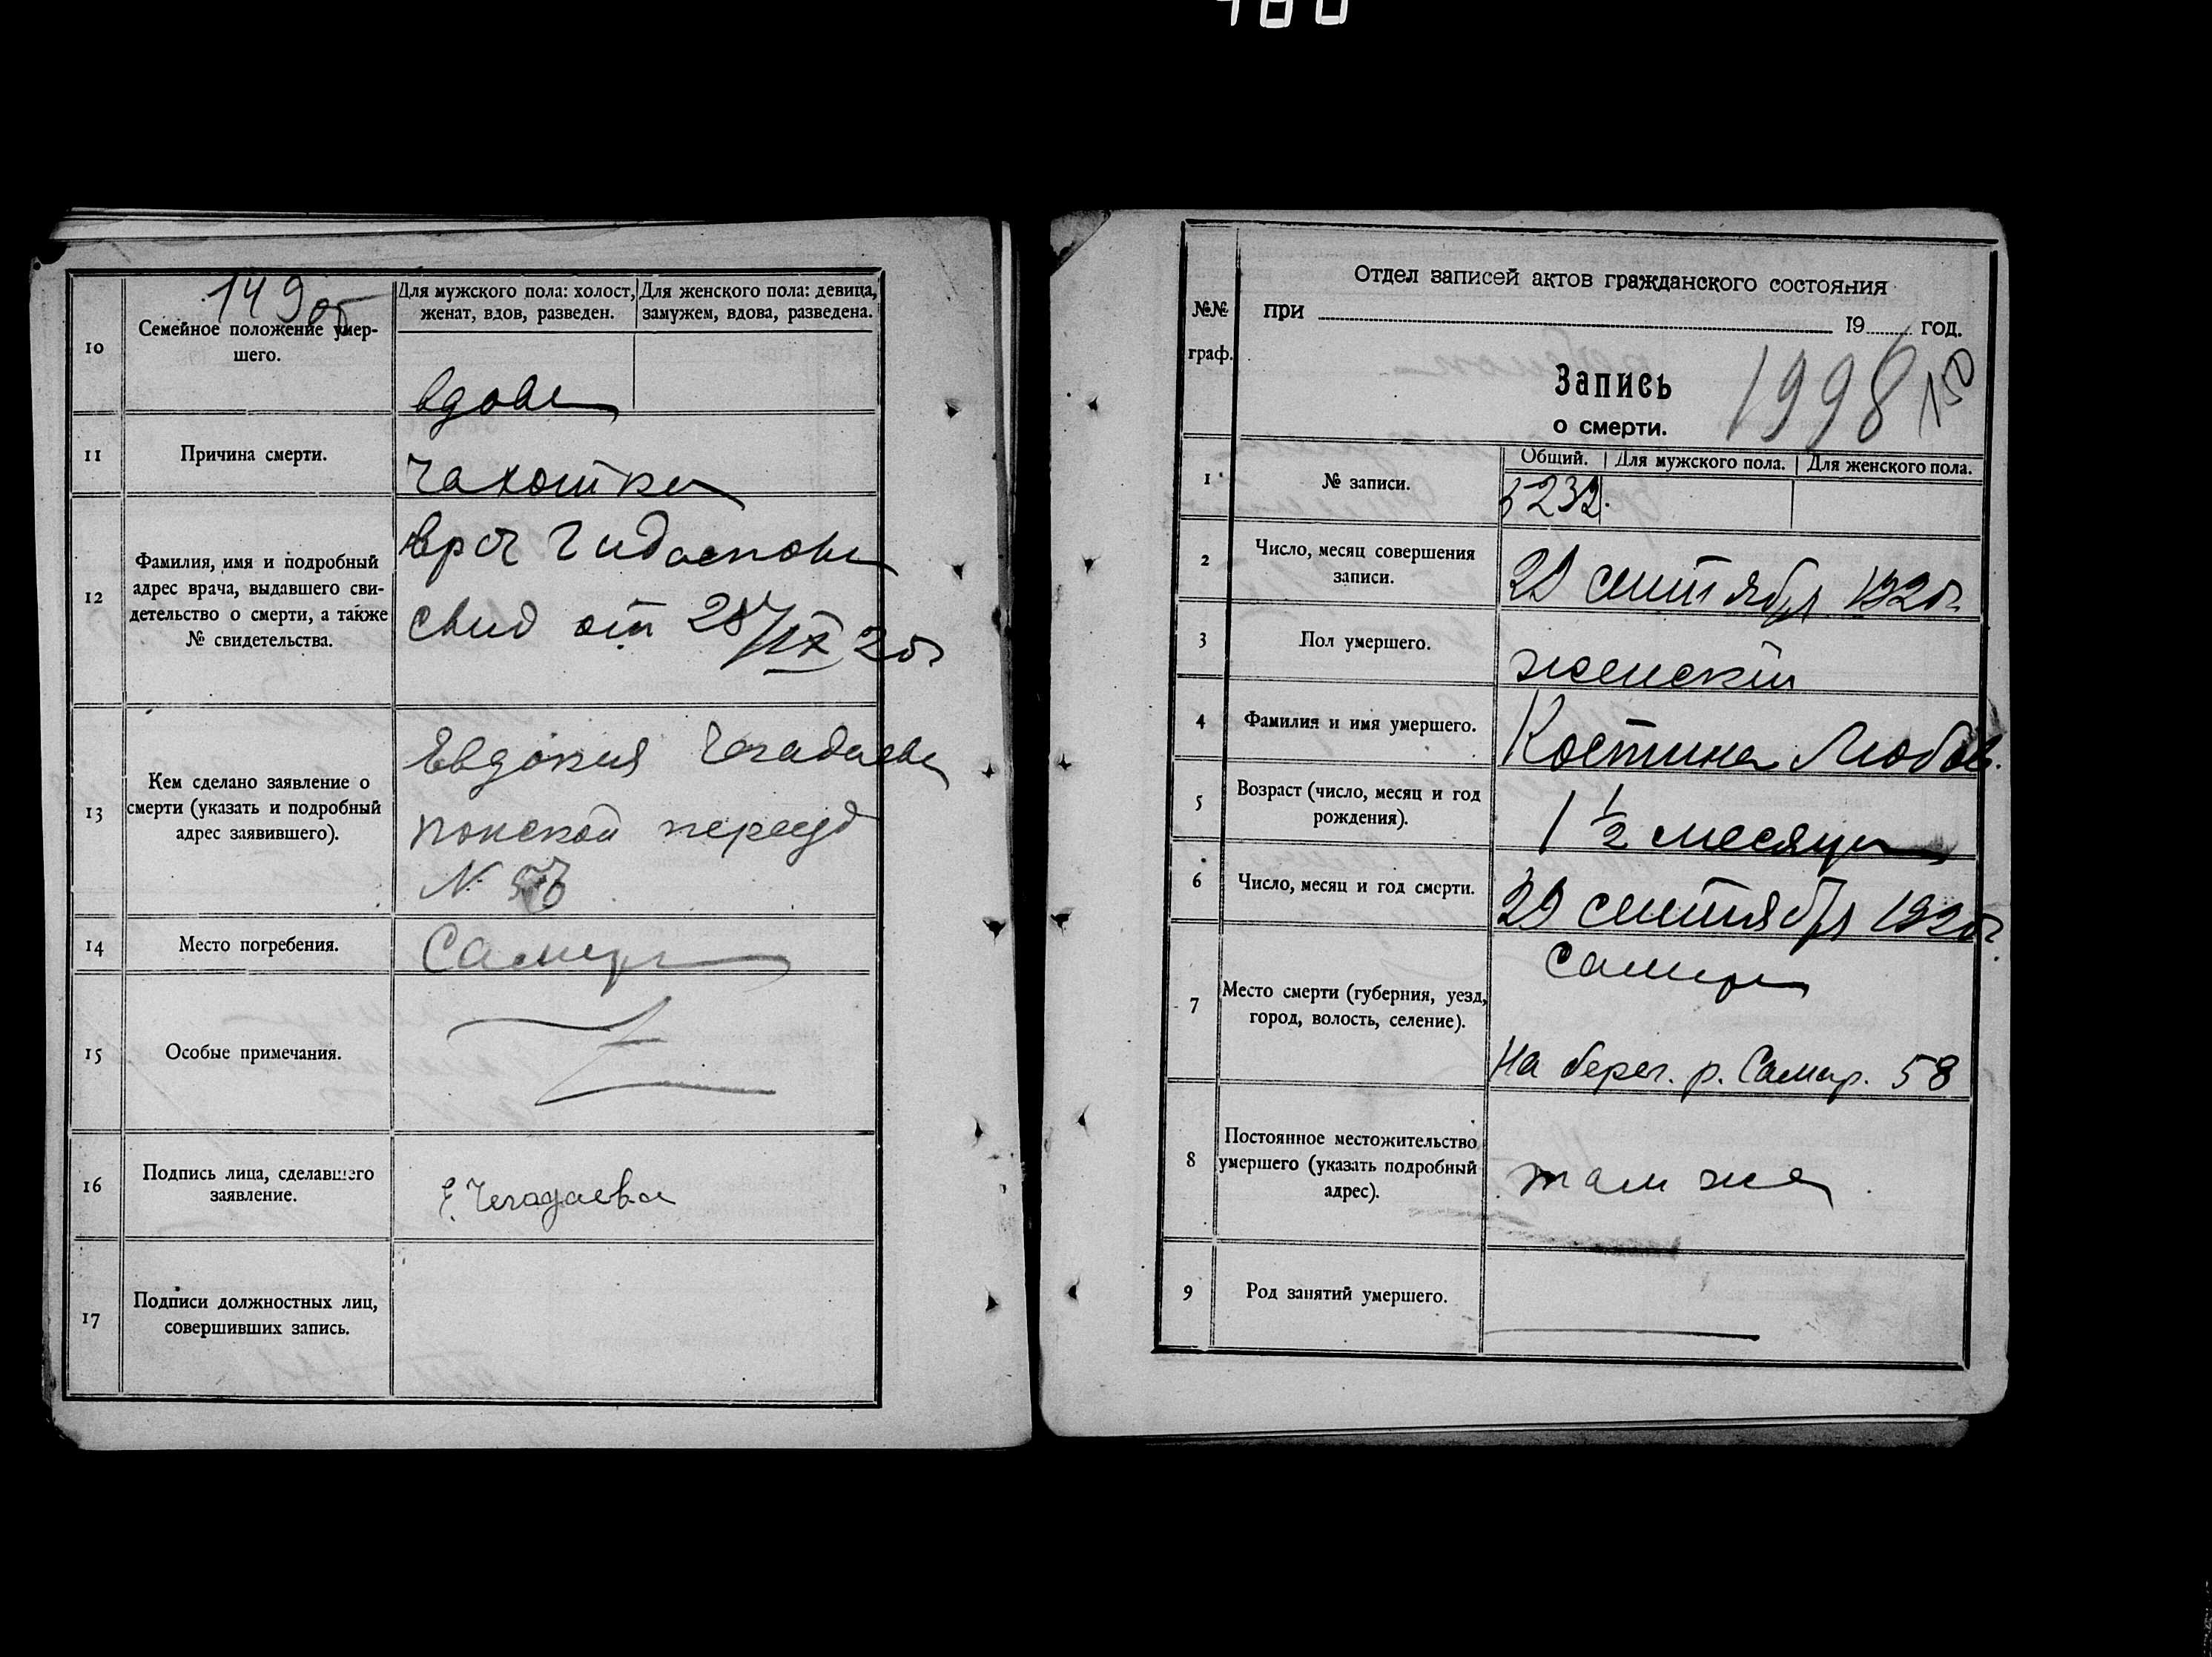 149 об
10
Семейное положение умер-
шего.
Для мужского пола: холост,
женат, вдов, разведен.
Для женского пола: девица,
замужем, вдова, разведена.
вдова
11
Причина смерти.
чахотка
12
Фамилия, имя и подробный
адрес врача, выдавшего сви-
детельство о смерти, а также
№ свидетельства.
врач Гидаспова
свид от 28/IX 20г
13
Кем сделано заявление о
смерти (указать и подробный
адрес заявившего).
Евдокия Чегадаева
№
14
Место погребения.
Самара
15
Особые примечания.
16
Подпись лица, сделавшего
заявление.
Е. Чегадаева
17
Подписи должностных лиц,
совершивших запись.
№№
граф.
Отдел записей актов гражданского состояния
при 19 год.
Запись
о смерти.
1998
150
1
№ записи.
Общий.
Для мужского пола.
Для женского пола.
5232.
2
Число, месяц совершения
записи.
29 сентября 1920г.
3
Пол умершего.
женский
4
Фамилия и имя умершего.
Костина Любовь.
5
Возраст (число, месяц и год
рождения).
1 ½ месяца
6
Число, месяц и год смерти.
29 сентября 1920г.
7
Место смерти (губерния, уезд,
город, волость, селение).
Самара
На берег. р. Самар. 58
8
Постоянное местожительство
умершего (указать подробный
адрес).
там же
9
Род занятий умершего.